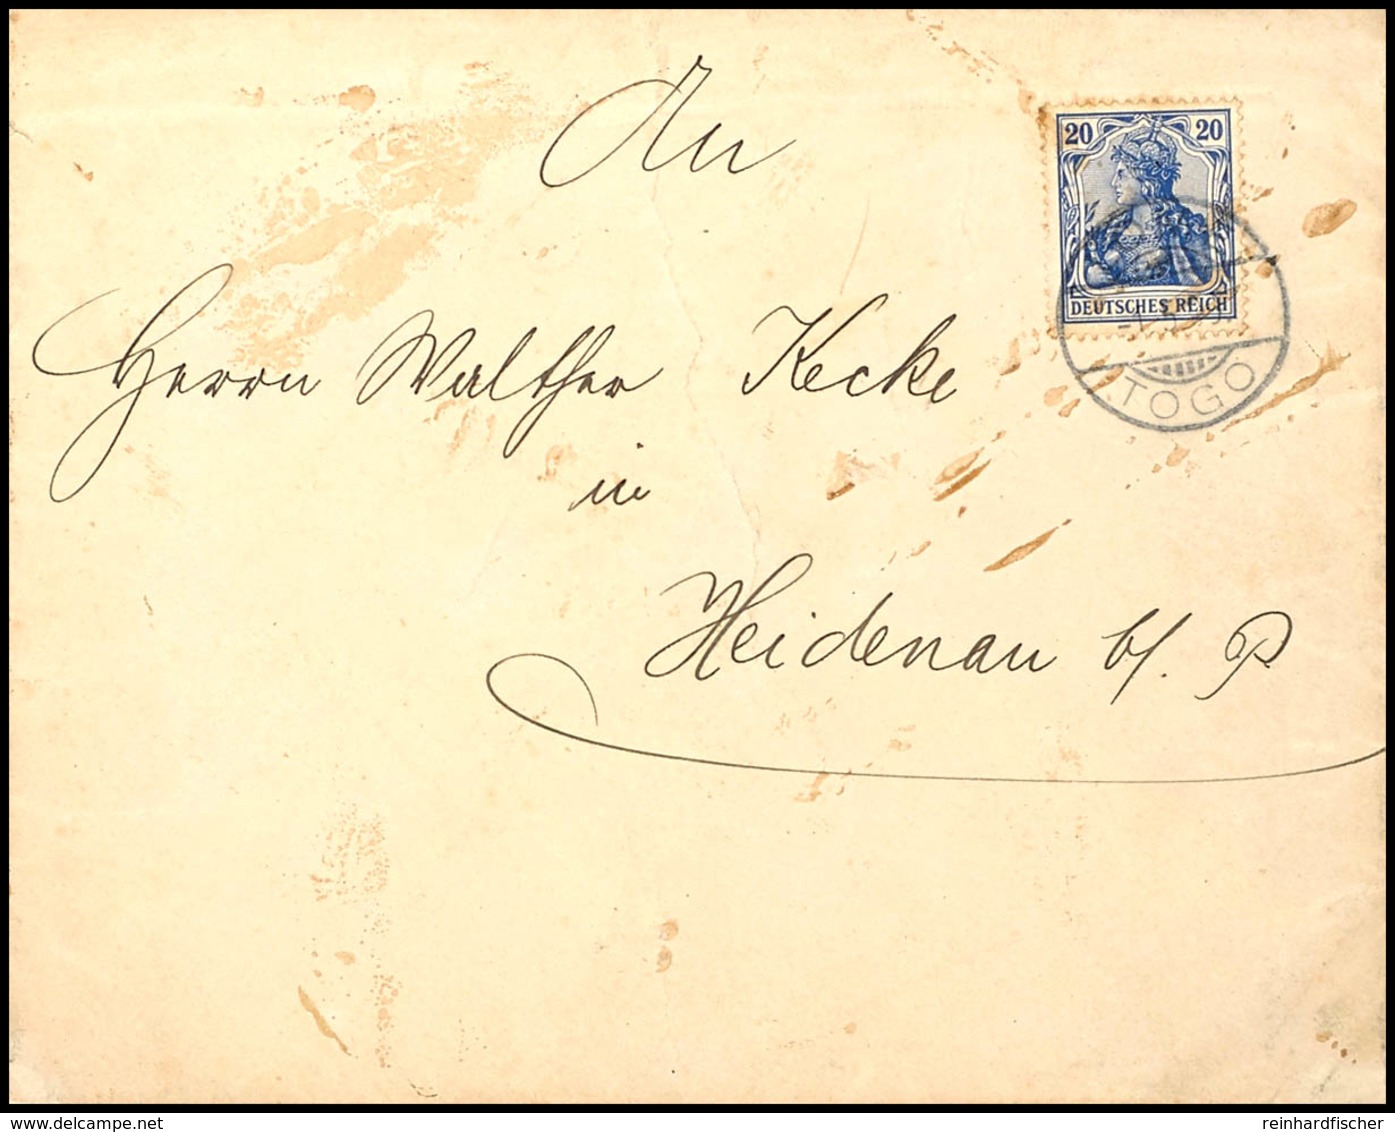 An
20 20
DEUTSCHES REICH
Herrn Walther Kecke
TOGO
in
Heidenau b/. P
www.delcampe.net
reinhardfischer